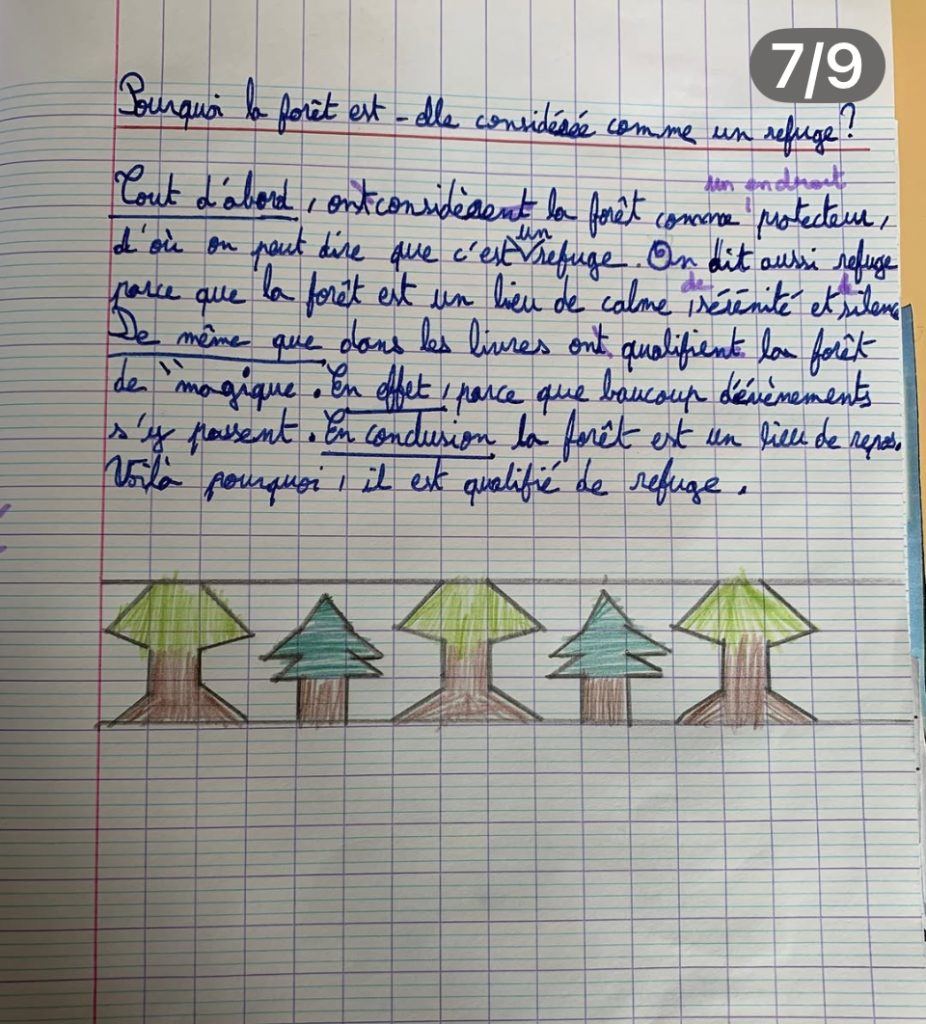 7/9
Pourquoi la forêt est-elle considérée comme un refuge?
un endroit
Tout d'abord, ont considèrent la forêt comme protecteur,
un
d'où on peut dire que c'est refuge. On dit aussi refuge
de de
parce que la forêt est un lieu de calme, sérénité et silence
De même que dans les livres ont qualifient la forêt
de "magique. En effet, parce que baucoup d'évènements
s'y passent. En conclusion la forêt est un lieu de repos.
Voilà pourquoi, il est qualifié de refuge.